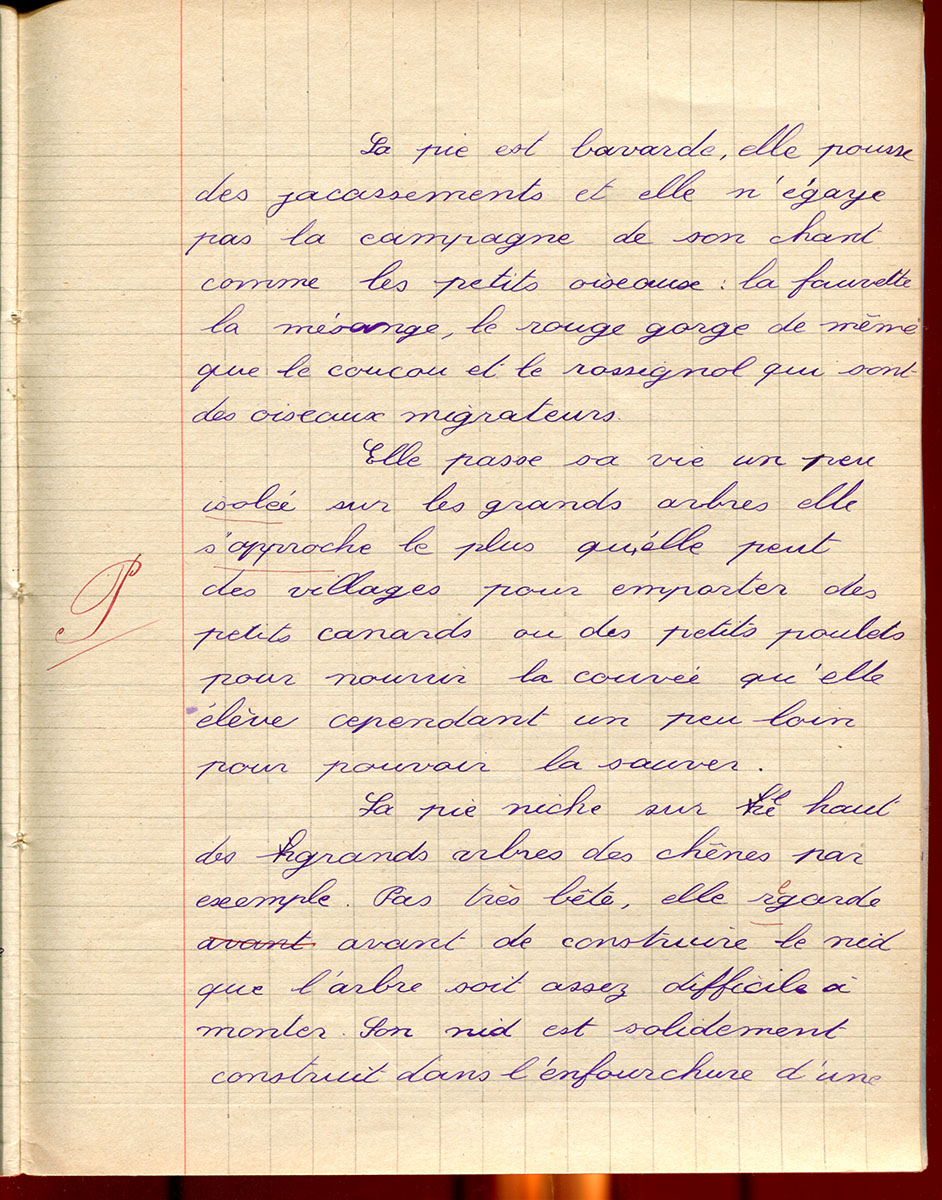 La pie est bavarde, elle pousse
des jacassements et elle n'égaye
pas la campagne de son chant
comme les petits oiseaux : la fauvette
la mésange, le rouge gorge de même
que le coucou et le rossignol qui sont
des oiseaux migrateurs.
Elle passe sa vie un peu
isolée sur les grands arbres elle
s'approche le plus qu'elle peut
des villages pour emporter des
P
petits canards ou des petits poulets
pour nourrir la couvée qu'elle
élève cependant un peu loin
pour pouvoir la sauver.
La pie niche sur le haut
des grands arbres des chênes par
exemple. Pas très bête, elle regarde
avant avant de construire le nid
que l'arbre soit assez difficile à
monter. Son nid est solidement
construit dans l'enfourchure d'une